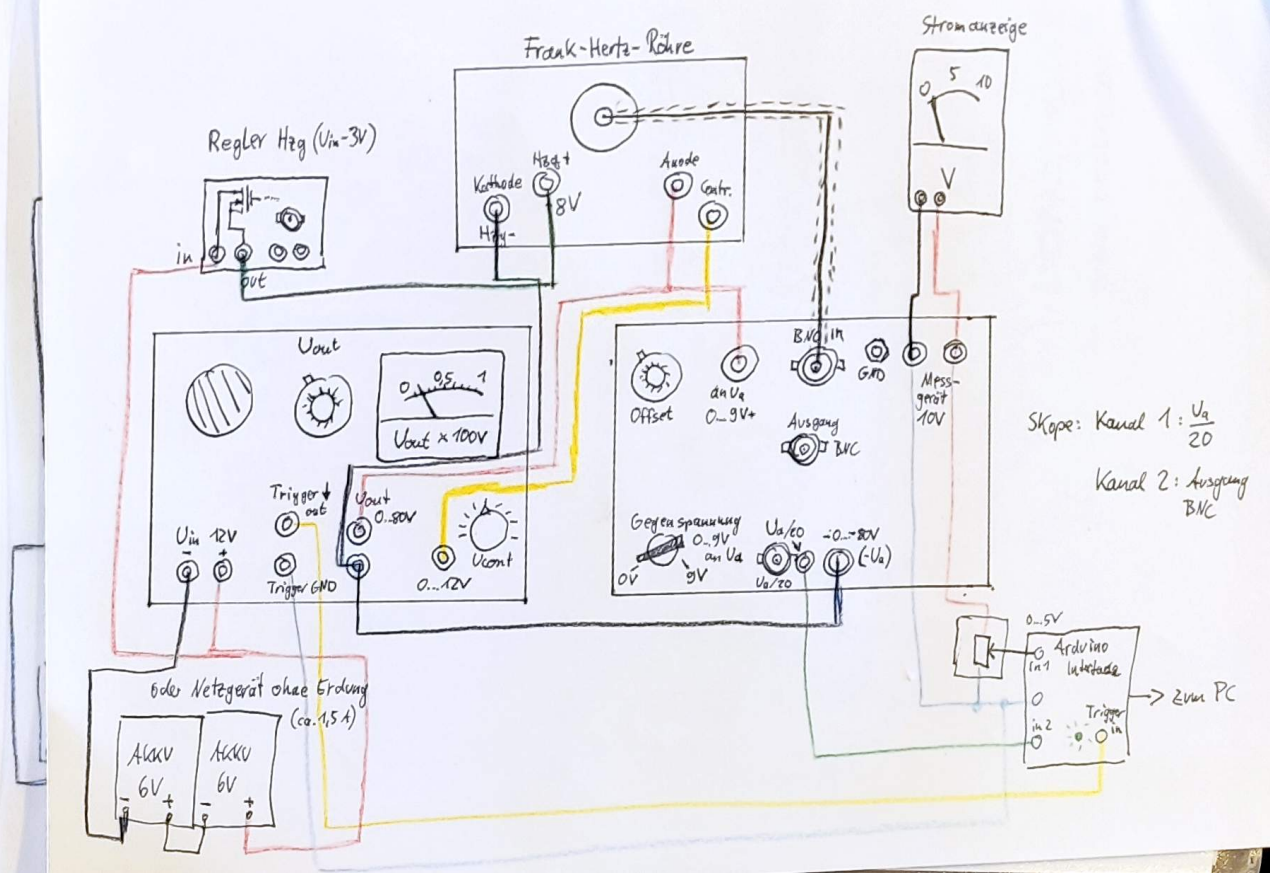 Stromanzeige
0 5 10
V
Frank-Hertz-Röhre
Kathode
Hzg+
8V
Hzg-
Anode
Contr.
Regler Hzg (Uin-3V)
in
out
Uout
0 0,5 1
Uout x 100V
Trigger ↓
out
Uout
0...80V
Uin 12V
- +
Trigger GND
0...12V
Ucont
Offset
an Ua
0...9V+
BNC in
GND
Mess-
gerät
10V
Ausgang
BNC
Gegenspannung
0...9V
an Ua
0V
9V
Ua/20
Ua/20
-0...-80V
(-Ua)
Skope: Kanal 1: Ua
20
Kanal 2: Ausgang
BNC
oder Netzgerät ohne Erdung
(ca. 1,5 A)
Akku
6V
- +
Akku
6V
- +
0...5V
Arduino
Interface
in 1
in 2
Trigger
in
→ zum PC